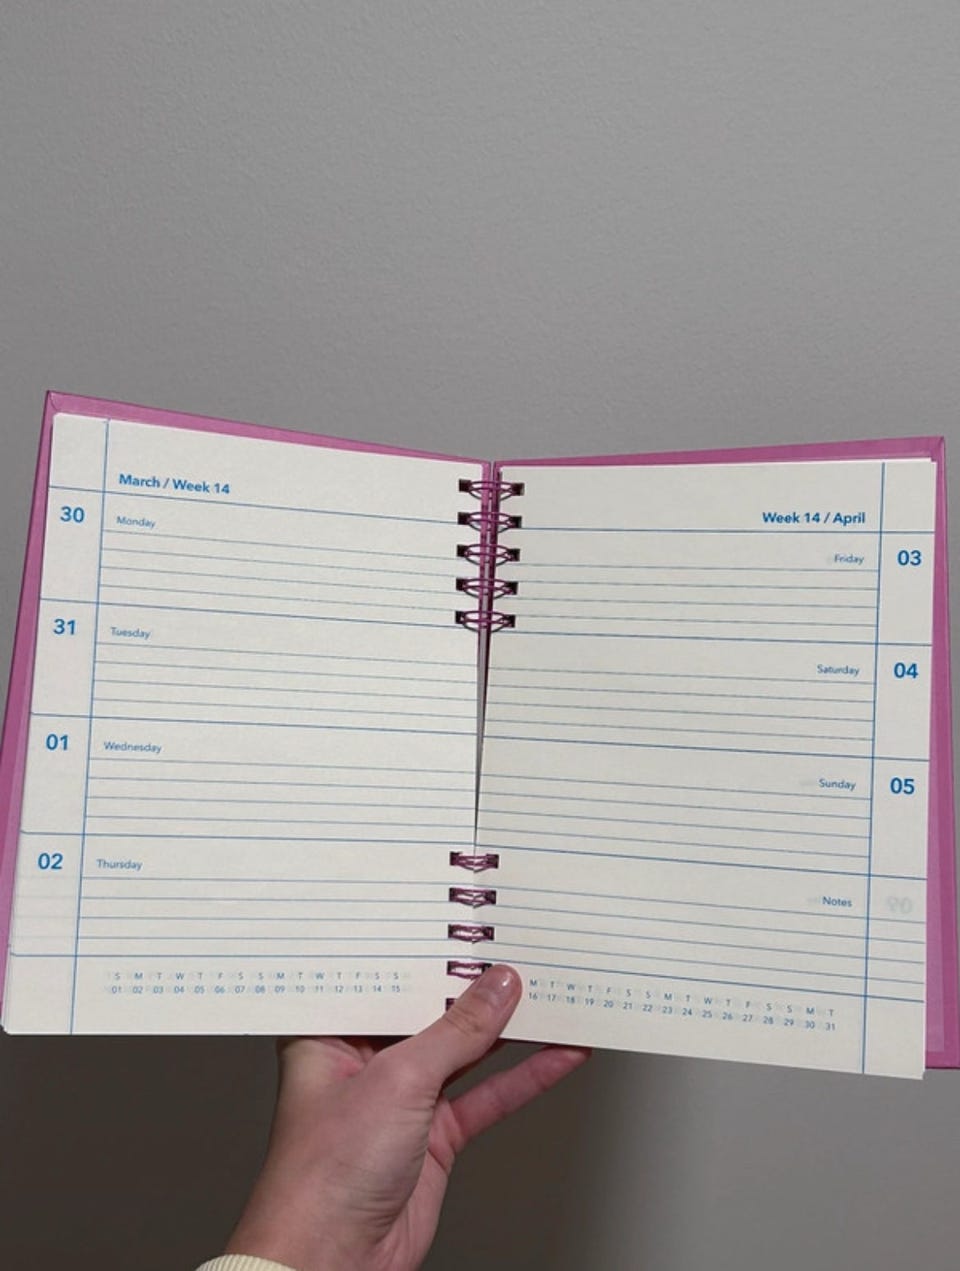 March / Week 14
30
Monday
31
Tuesday
01
Wednesday
02
Thursday
S M T W T F S S M T W T F S S
01 02 03 04 05 06 07 08 09 10 11 12 13 14 15
Week 14 / April
Friday
03
Saturday
04
Sunday
05
Notes
M T W T F S S M T W T F S S M T
16 17 18 19 20 21 22 23 24 25 26 27 28 29 30 31